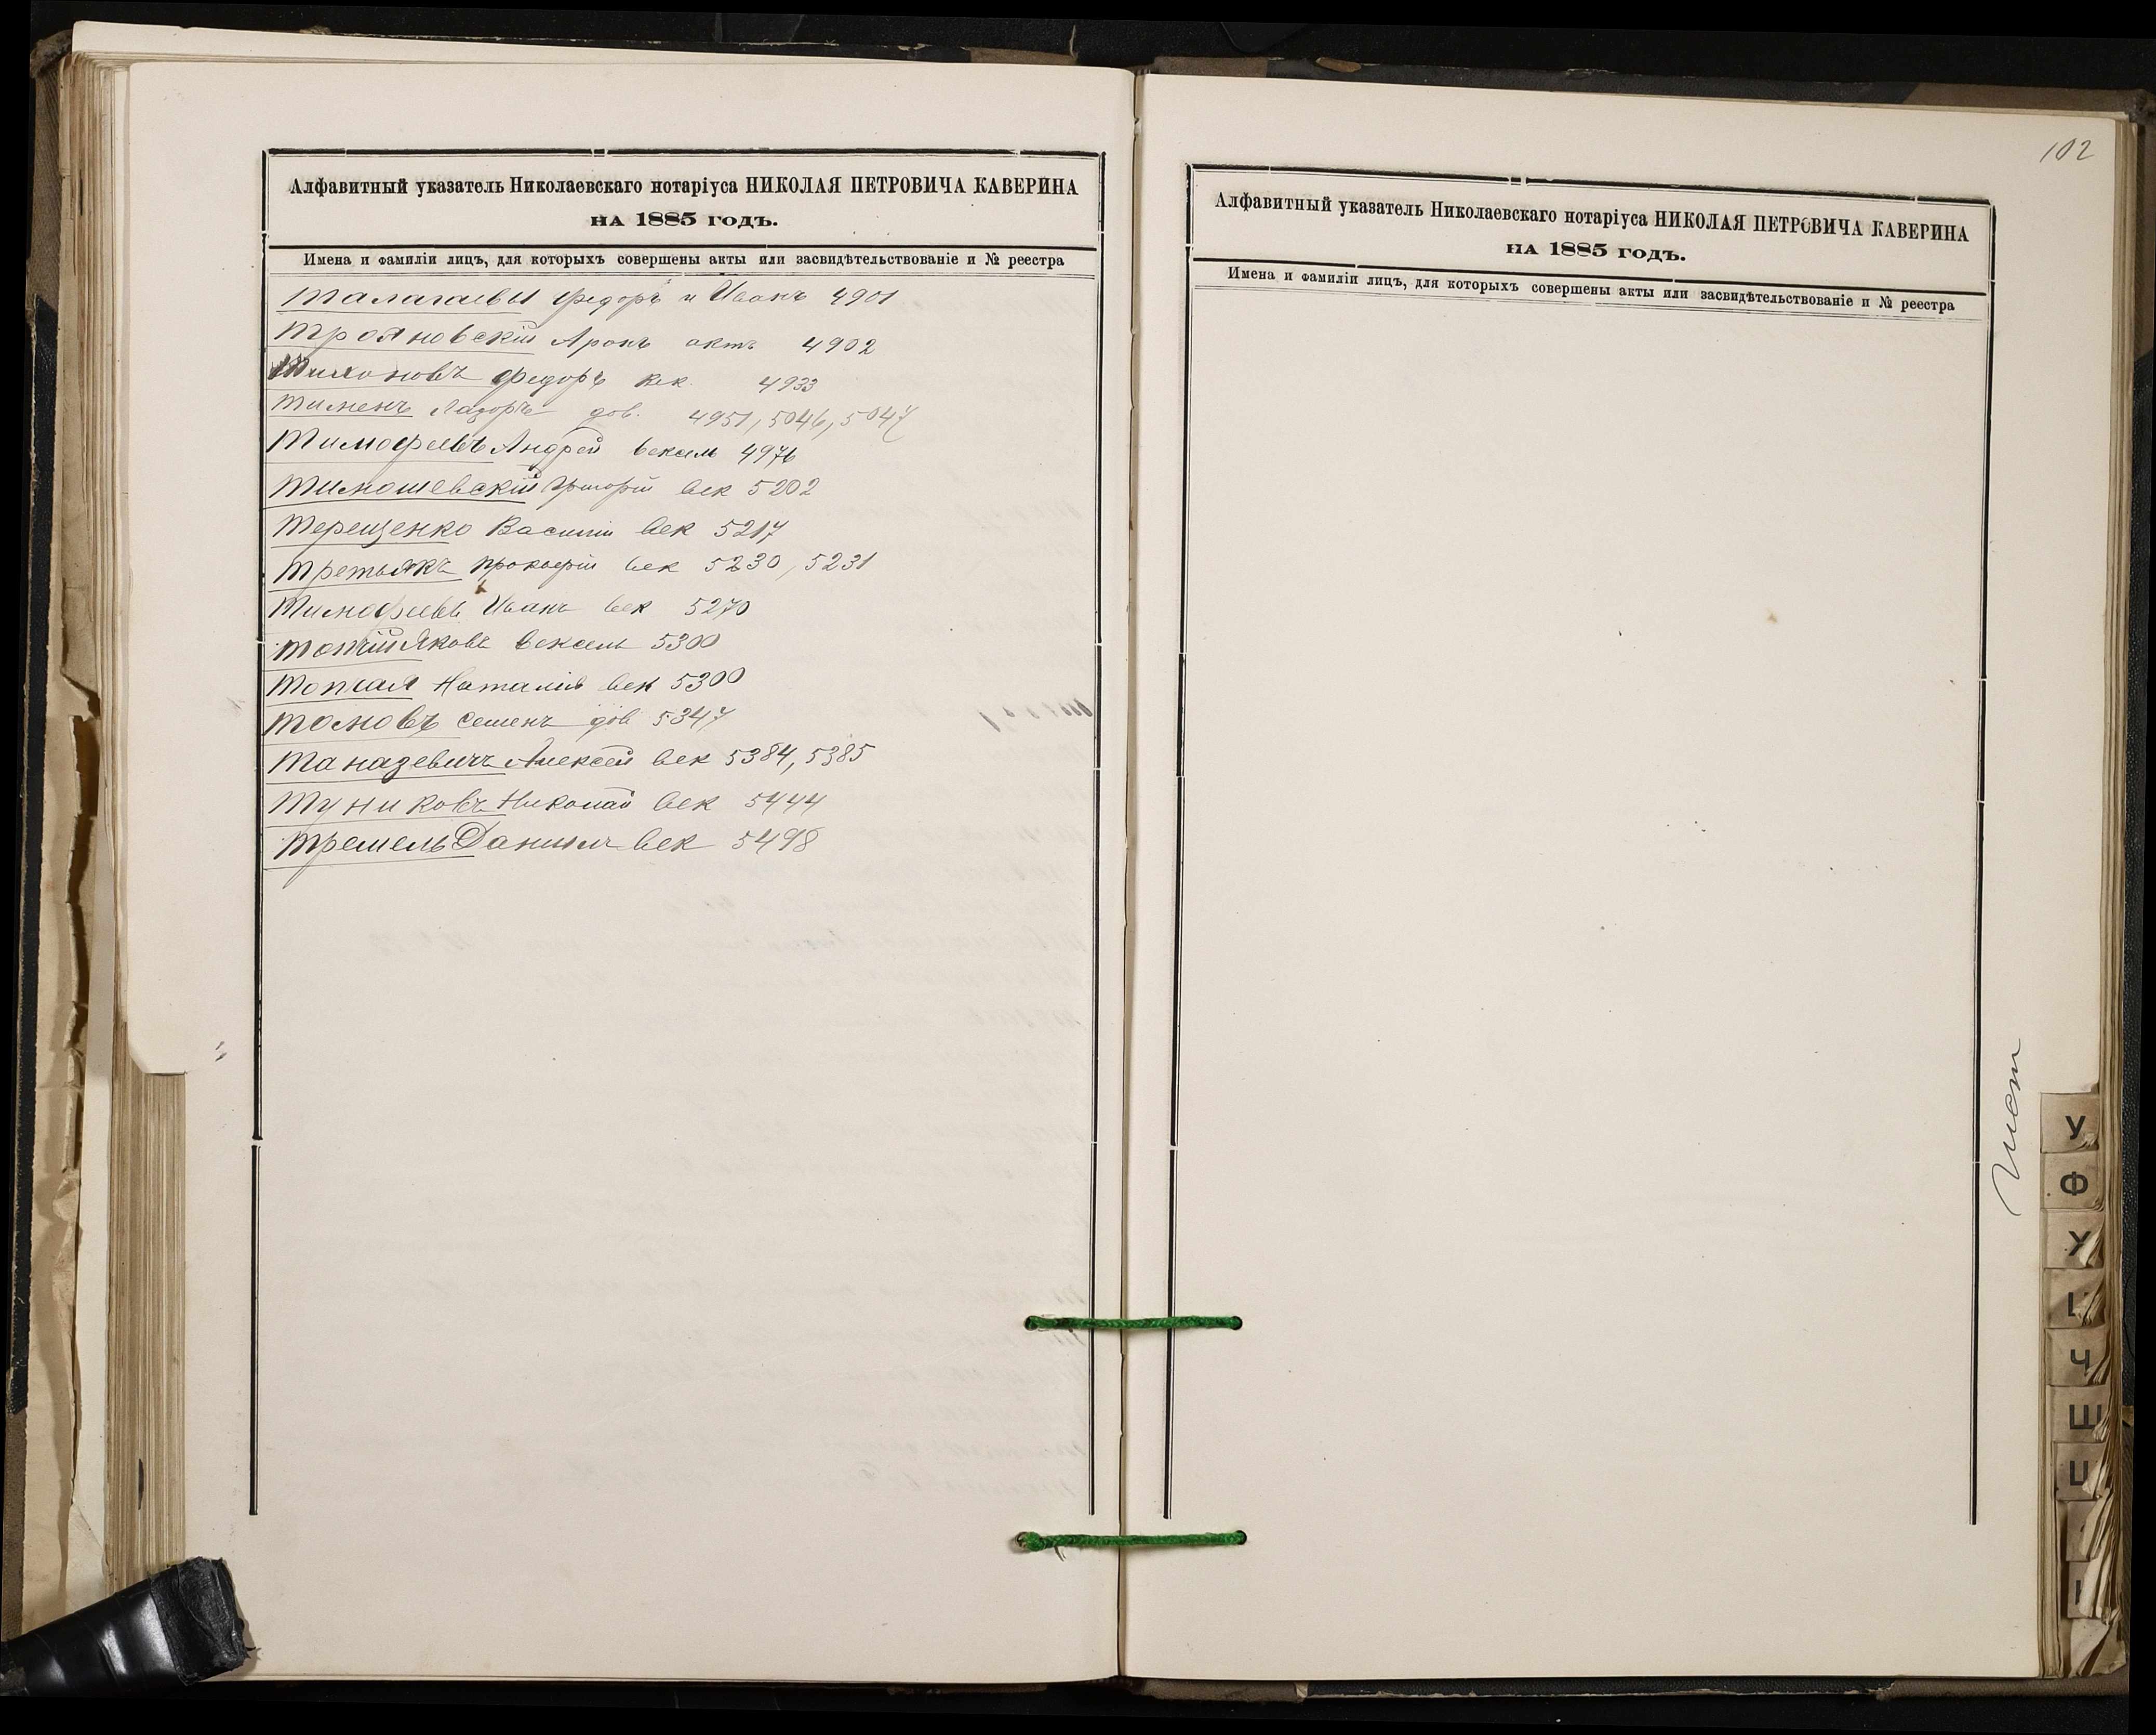 Алфавитный указатель Николаевскаго нотаріуса НИКОЛАЯ ПЕТРОВИЧА КАВЕРИНА
на 1885 годъ.
Имена и фамиліи лицъ, для которыхъ совершены акты или засвидѣтельствованіе и № реестра
Талагаевы Федоръ и Иванъ 4901
Трояновскій Аронъ актъ 4902
Тихоновъ Федоръ век. 4933
Тименъ Лазорь дов. 4951, 5046, 5047
Тимофеевъ Андрей вексель 4976
Тимошевскій Григорій век 5202
Терещенко Василій век 5217
Третьякъ Прокофій век 5230, 5231
Тимофеевъ Иванъ век 5270
Топчій Яковъ вексель 5300
Топчая Наталія век 5300
Томовъ Семенъ дов 5347
Таназевичъ Алексей век 5384, 5385
Туниковъ Николай век 5444
Тремель Данилъ век 5498
102
Алфавитный указатель Николаевскаго нотаріуса НИКОЛАЯ ПЕТРОВИЧА КАВЕРИНА
на 1885 годъ.
Имена и фамиліи лицъ, для которыхъ совершены акты или засвидѣтельствованіе и № реестра
У
Ф
Х
Ц
Ч
Ш